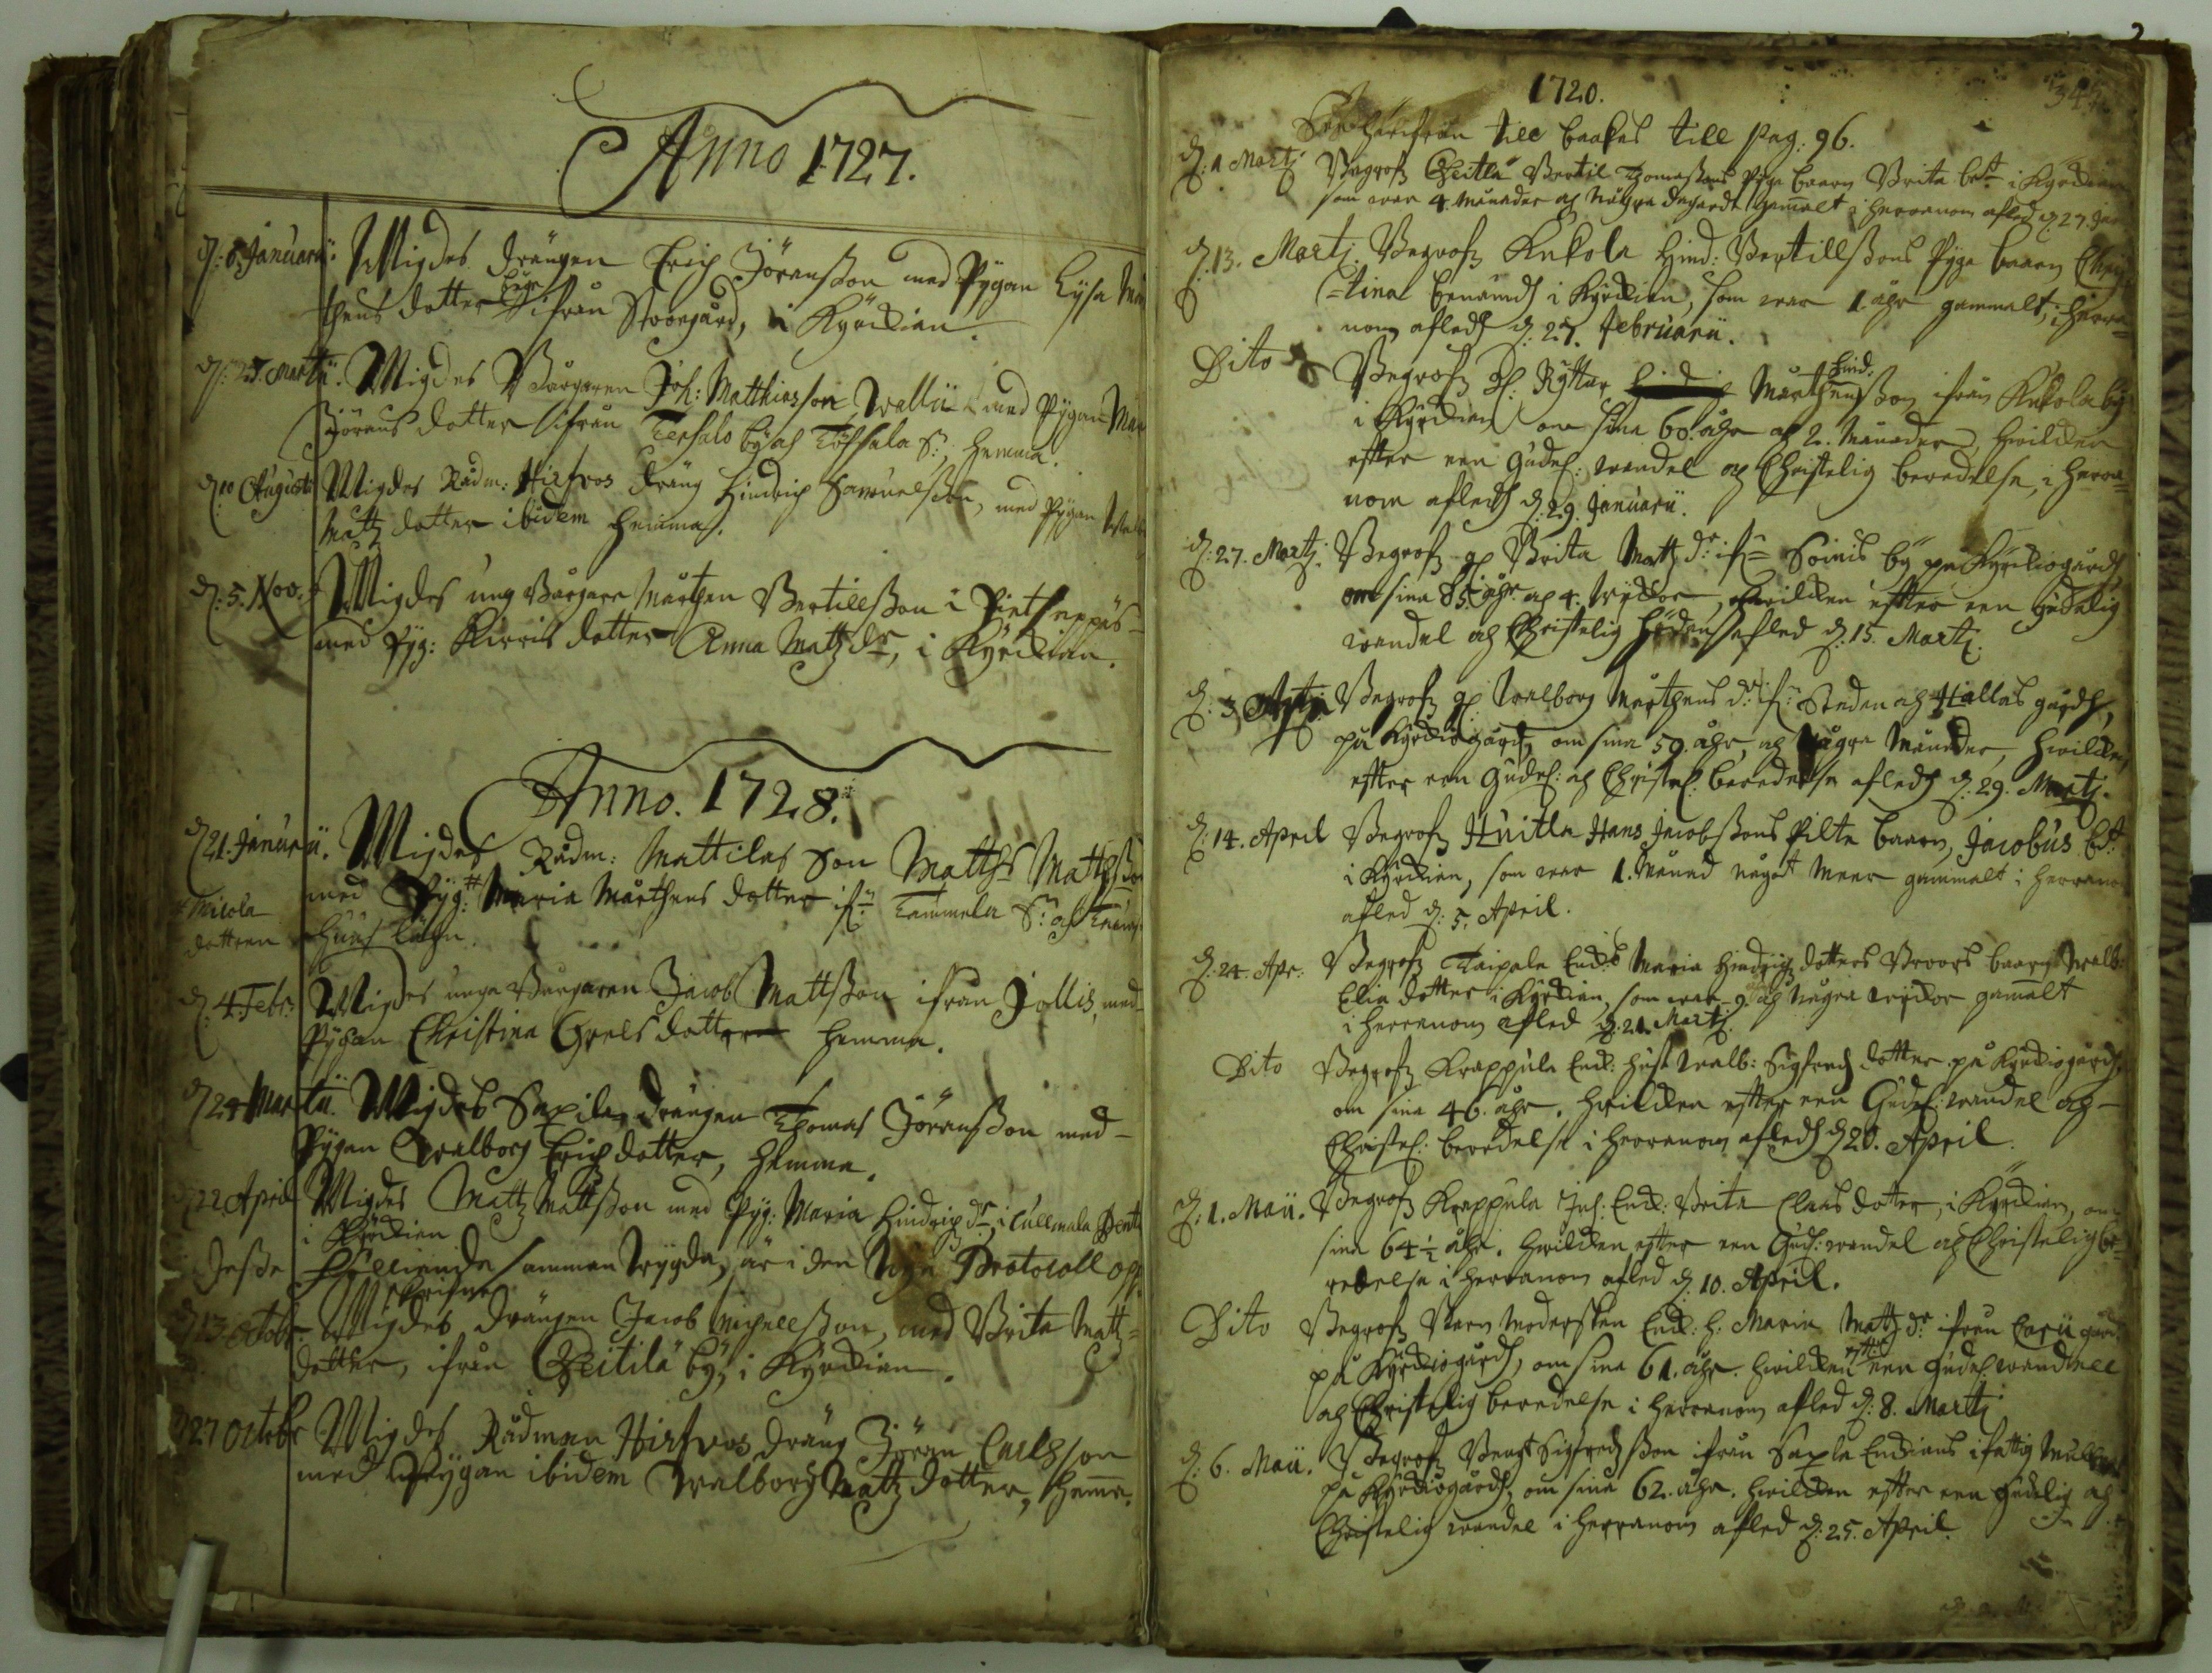 Anno 1727.
d: 6. Januarii. Wigdes drängen Erich Jöransson med Pygan Lysa
thens dotter ifrån Stoorgård, i Kyrckian.
d: 25. Martii. Wigdes Borgaren Joh: Matthiasson Wallii med Pygan
Jörans dotter ifrån Tersalo by och Töfsala S:, hemma.
d: 10 Augusti Wigdes Rådm: Hirfvos dräng Hindrich Samuelsson, med Pygan
Matz dotter ibidem hemma.
d: 5. Nov. Wigdes ung Borgare Mårthen Bertillsson i
med Pyg: Kirris dotter Anna Matz dr, i Kyrckian.
Anno. 1728.
d 21. Januarii. Wigdes Rådm: Mattilas Son Matths Mattsson
med Pyg: # Maria Mårthens dotter ifr: Tammela S: och
# Micola
dottren
d. 4. Febr: Wigdes unga Borgaren Jacob Mattsson ifrån Jollis, med
Pygan Christina Grels dotter hemma.
d 24 Martii. Wigdes Saxila drängen Thomas Jöransson med
Pygan Walborg Erich dotter, hemma.
d 22. April Wigdes Matz Mattsson med Pyg: Maria Hindrich dr, i Cullmala
i Kyrckian
Desse Föllliande sammanwygda, är i den Nya Protocoll opp
skrifne
d 13 octobr. Wigdes drängen Jacob Michellsson, med Brita Matz
dotter, ifrån Qveitilä by, i Kyrckian.
d 27 Octobr Wigdes Rådman Hirfvos dräng Jöran Carlsson
med Pygan ibidem Walborg Matz dotter, hemma.
1720.
till bakes till Pag: 96.
d: 1 Martj Begrofz Qveitla Bertil Thomassons Pyge baarn Brita be:d i Kyrckian
som war 4. Månader och några dagar gammalt i herranom afled d. 27. Jan
d. 13. Martj. Begrofz Kukola Hind: Bertillssons Pyge baarn Chris
=tina benämd i Kyrckian, som war 1. åhr gammalt, i herra=
nom afledh d: 27. Februarii.
Dito Begrofz Ryttar Mårthensson Hind: ifrån Kukola by
i Kyrckian om sina 60. åhr och 2. Månader, hwilcken
effter een Gudel: wandel och Christelig beredelse, i herra=
nom afledh d. 29. Januarii.
d: 27. Martj. Begrofz Brita Matz dr: ifr: Soinis by på Kyrckiogårdh
om sina 85. åhr och 4. wyckor, hwilcken effter een Gudelig
wandel och Christelig hädans afled d: 15. Martj.
d. 3 Begrofz Walborg Mårthens dr: ifr: Staden och Hallas gårdh,
på Kyrckiogårdh, om sina 59. åhr, och några Månader, hwilcken
effter een Gudel: och Christel: beredelse afledh d: 29. Martj.
d. 14. April Begrofz Huitla Hans Jacobssons Pilte baarn, Jacobus be:d
i Kyrckian, som war 1. Månad något meer gammalt i herrano
afled d: 5. April.
d. 24. Apr: Begrofz Taipale Enck: Maria Hindrich dotters baarn Walb:
Elia dotter i Kyrckian, som war 9. och några wyckor gammalt
i herranom afled d. 21. Martj
Dito Begrofz Krappula Enck: Walb: Sigfredh dotter på Kyrckiogårdh,
om sina 46. åhr. hwilcken effter een Gudel: wandel och
Christel: beredelse i herranom afledh d 20. April.
d: 1. Maii. Begrofz Krappula Enck: Brita Claas dotter, i Kyrckian, om
sina 64 ½ åhr. hwilcken effter een Gud: wandel och Christelig be=
redelse i herranom afled d. 10. April.
Dito Begrofz Barn Modersken Enck: h. Maria Matz dr: ifrån Carii gård
på Kyrckiogårdh, om sina 61. åhr. hwilcken effter een Gudel: wandell
och Christelig beredelse i herranom afled d: 8. Martj
d: 6. Maii. Begrofz Bengt Sigfredhsson ifrån Saxla
på Kyrckiogårdh, om sina 62. åhr. hwilcken effter een Gudelig och
Christelig wandel i herranom afled d: 25. April.